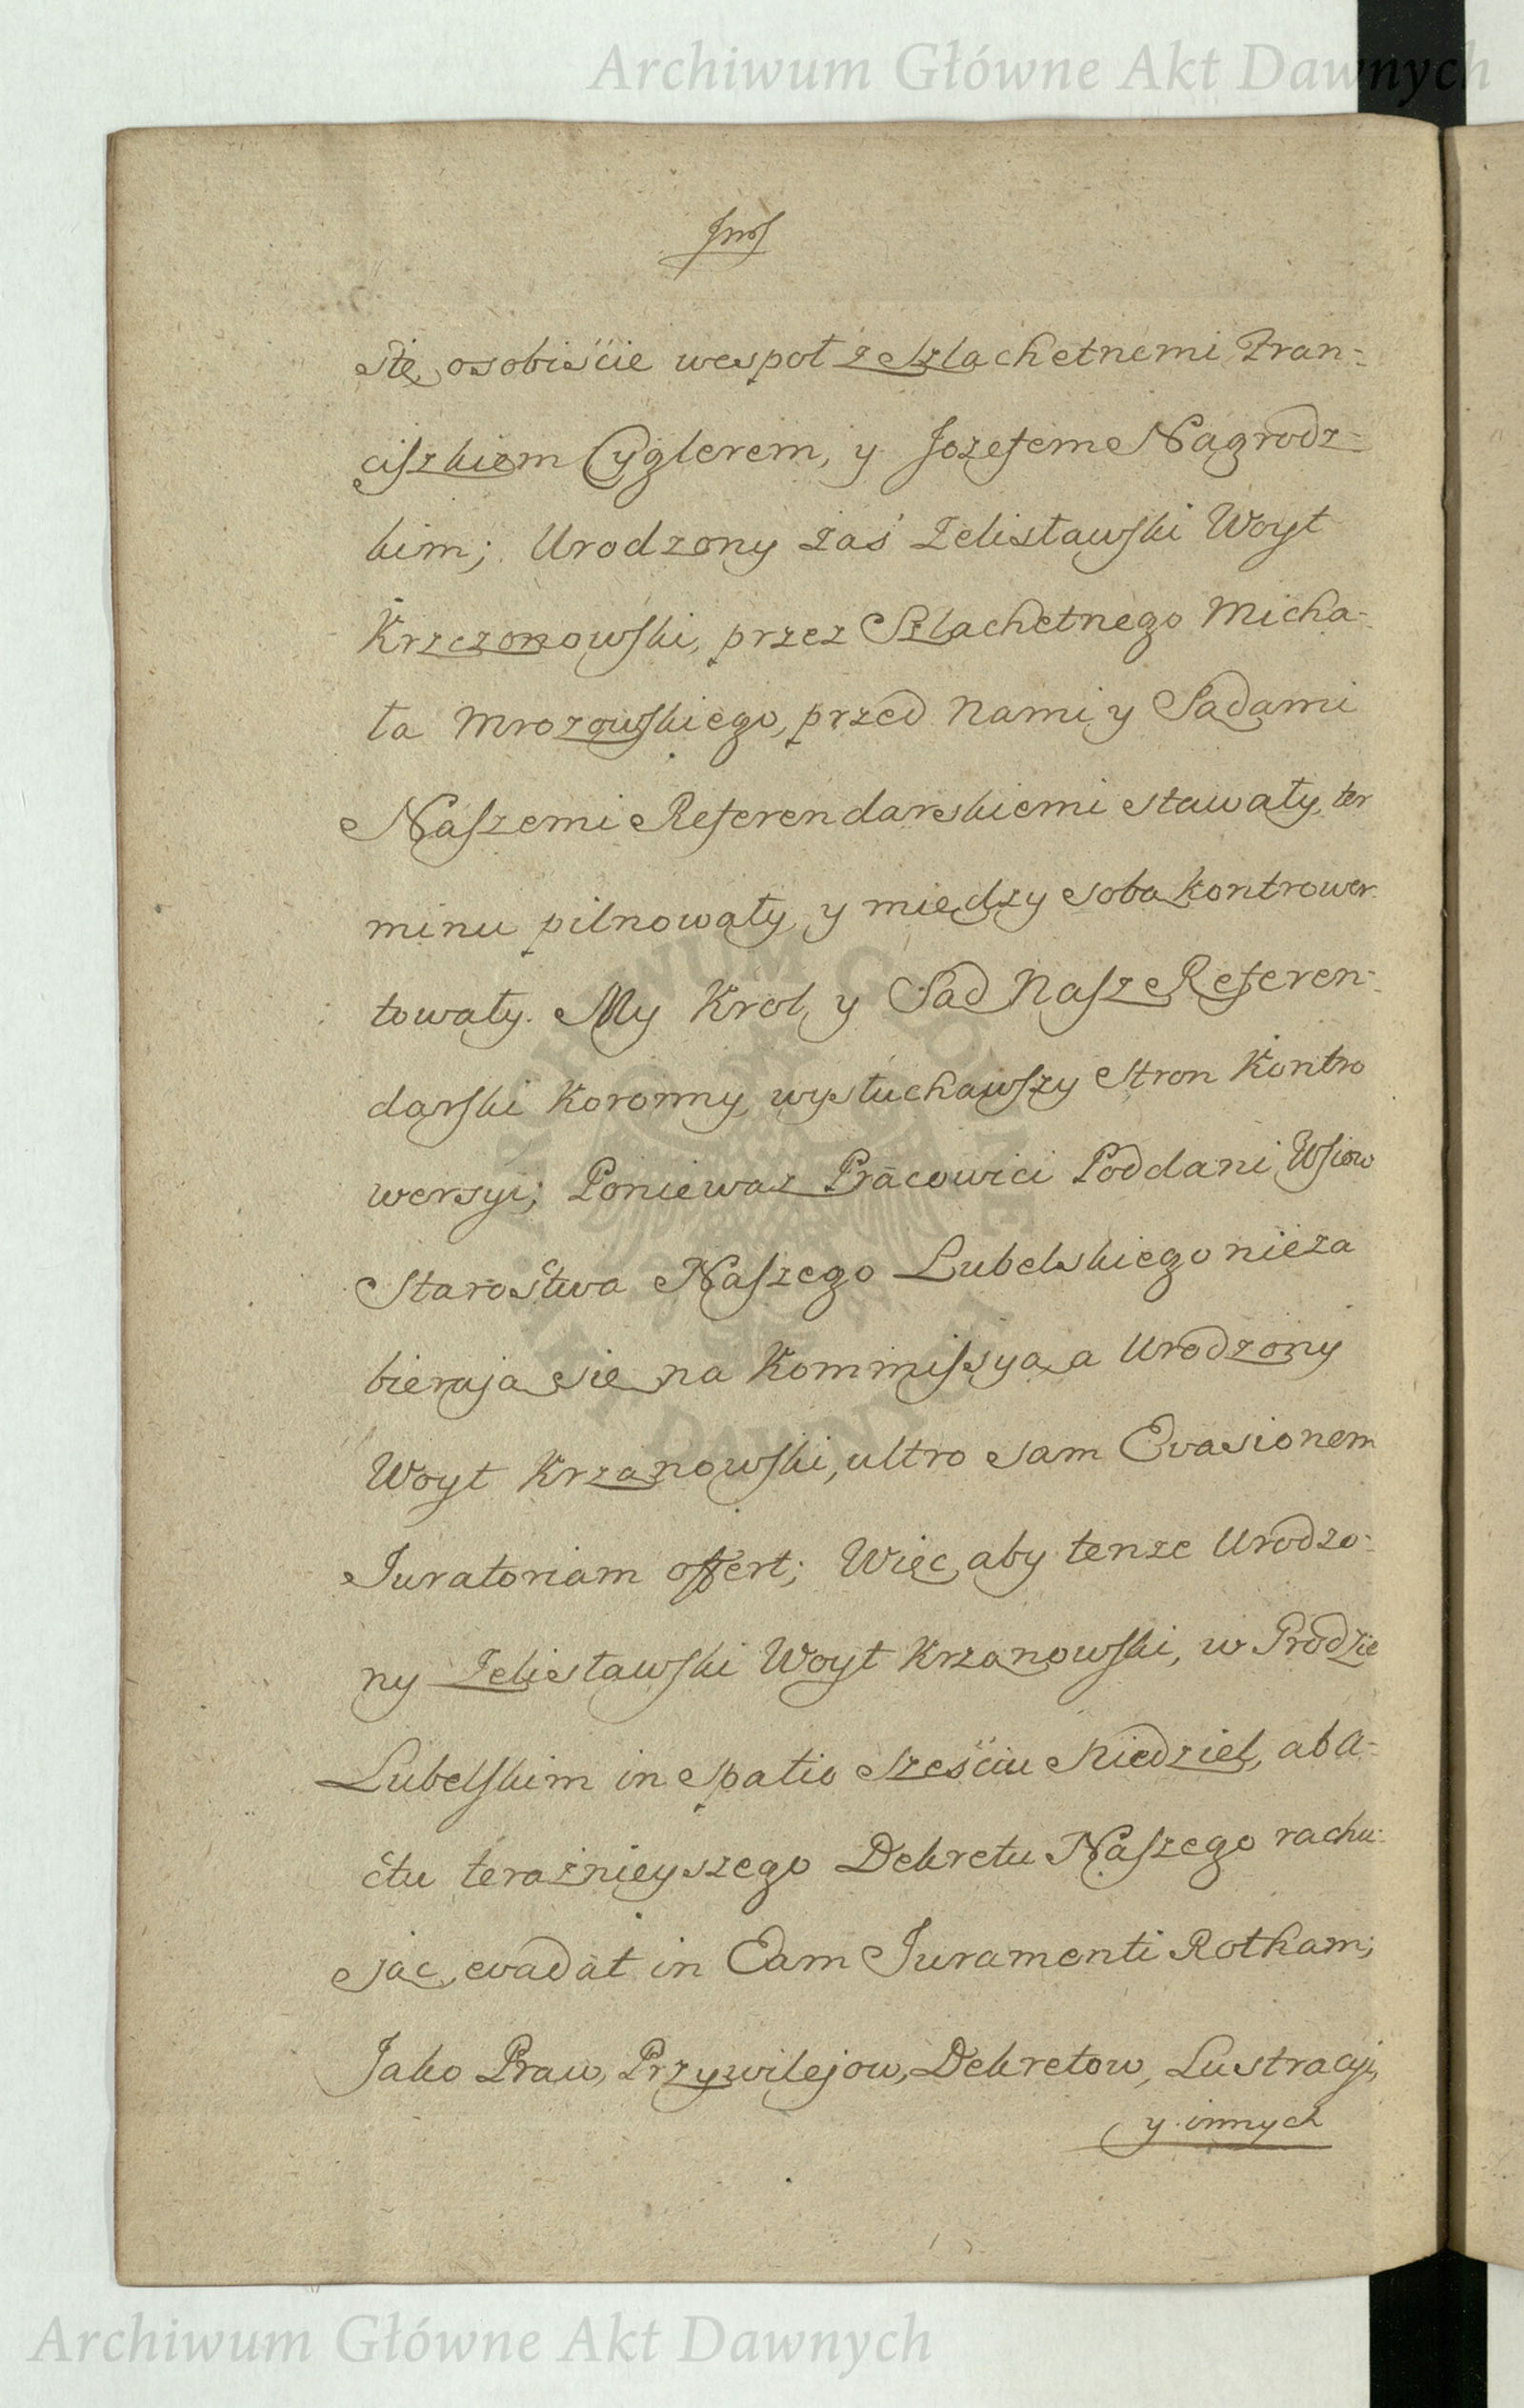 Archiwum Główne Akt Dawnych
się osobiście wespoł z Szlachetnemi Fran=
ciszkiem Cyglerem, y Jozefem Nagrodz=
kim; Urodzony zaś Zelisławski Woyt
Krzczonowski, przez Szlachetnego Micha=
ła Mrozowskiego, przed Nami y Sądami
Naszemi Referendarskiemi stawały, ter
minu pilnowały, y między sobą kontrower=
towały. My Krol, y Sąd Nasz Referen=
darski Koronny wysłuchawszy stron Kontro
wersyi; Poniewaz Pracowici Poddani Wsiow
Starostwa Naszego Lubelskiego nieza
bierają się na Kommissyą, a Urodzony
Woyt Krzanowski, ultro sam Evasionem
Juratoriam offert; Więc aby tenze Urodzo=
ny Zelisławski Woyt Krzanowski, w Grodzie
Lubelskim in spatio sześciu Niedziel, ab A=
ctu teraźnieyszego Dekretu Naszego rachu=
jąc, evadat in Eam Juramenti Rotham;
Jako Praw, Przywilejow, Dekretow, Lustracyi,
y innych
ARCHIWUM GŁÓWNE AKT DAWNYCH
Archiwum Główne Akt Dawnych